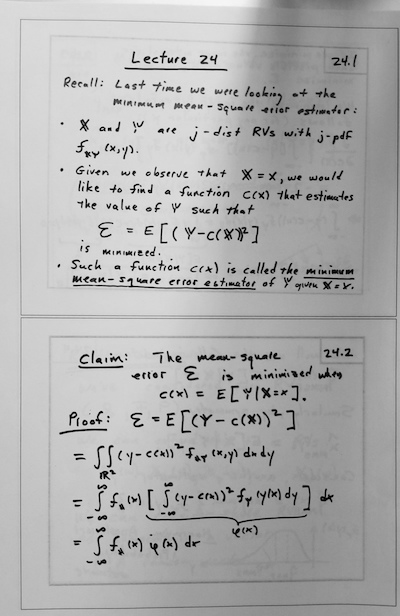 Lecture 24
24.1
Recall: Last time we were looking at the
minimum mean-square error estimator:
• 𝕏 and 𝕐 are j-dist RVs with j-pdf
f𝕏𝕐(x,y).
• Given we observe that 𝕏 = x, we would
like to find a function c(x) that estimates
the value of 𝕐 such that
ℰ = E[(𝕐-c(𝕏))²]
is minimized.
• Such a function c(x) is called the minimum
mean-square error estimator of 𝕐 given 𝕏 = x.
24.2
Claim: The mean-square
error ℰ is minimized when
c(x) = E[𝕐|𝕏=x].
Proof: ℰ = E[(𝕐-c(𝕏))²]
= ∬ℝ² (y-c(x))² f𝕏𝕐(x,y) dx dy
= ∫_{-∞}^{∞} f𝕏(x) [∫_{-∞}^{∞} (y-c(x))² f𝕐(y|x) dy] dx
φ(x)
= ∫_{-∞}^{∞} f𝕏(x) φ(x) dx